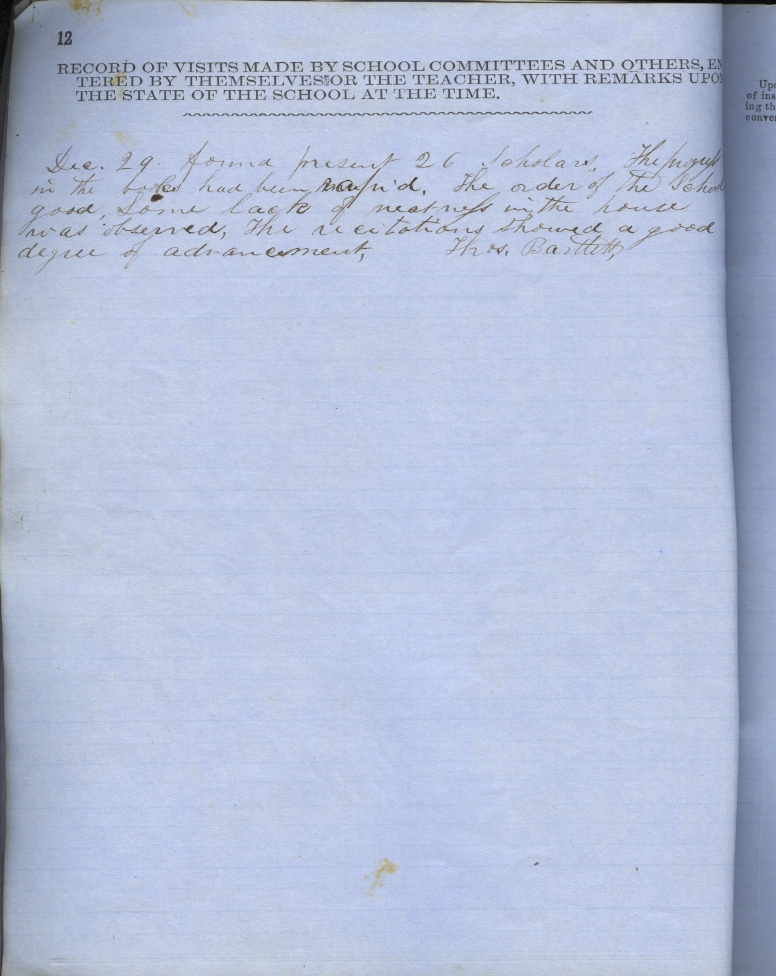 12
RECORD OF VISITS MADE BY SCHOOL COMMITTEES AND OTHERS, EN
TERED BY THEMSELVES OR THE TEACHER, WITH REMARKS UPO
THE STATE OF THE SCHOOL AT THE TIME.
Dec. 29. found present 26 Scholars, The progress
in the books had been rapid. The order of the School
good, Some lack of neatness in the house
was observed, The recitations showed a good
degree of advancement, Thos. Bartlett,
Upo
of ins
ing th
conver